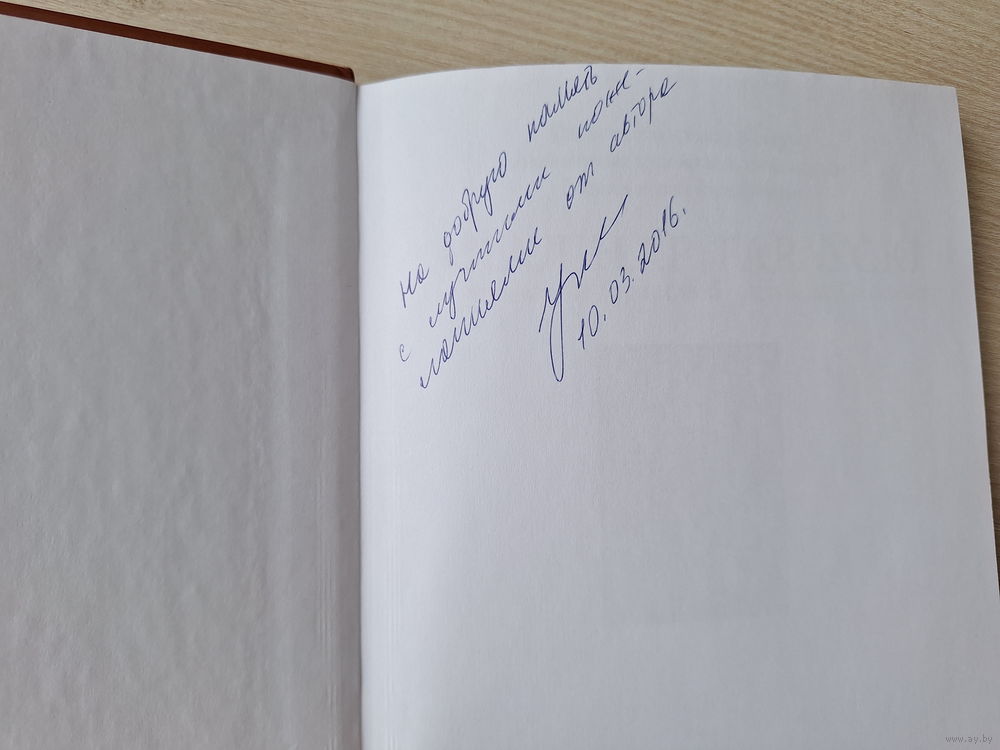 На добрую память
с лучшими поже-
ланиями от автора
10.03.2016.
www.ay.by